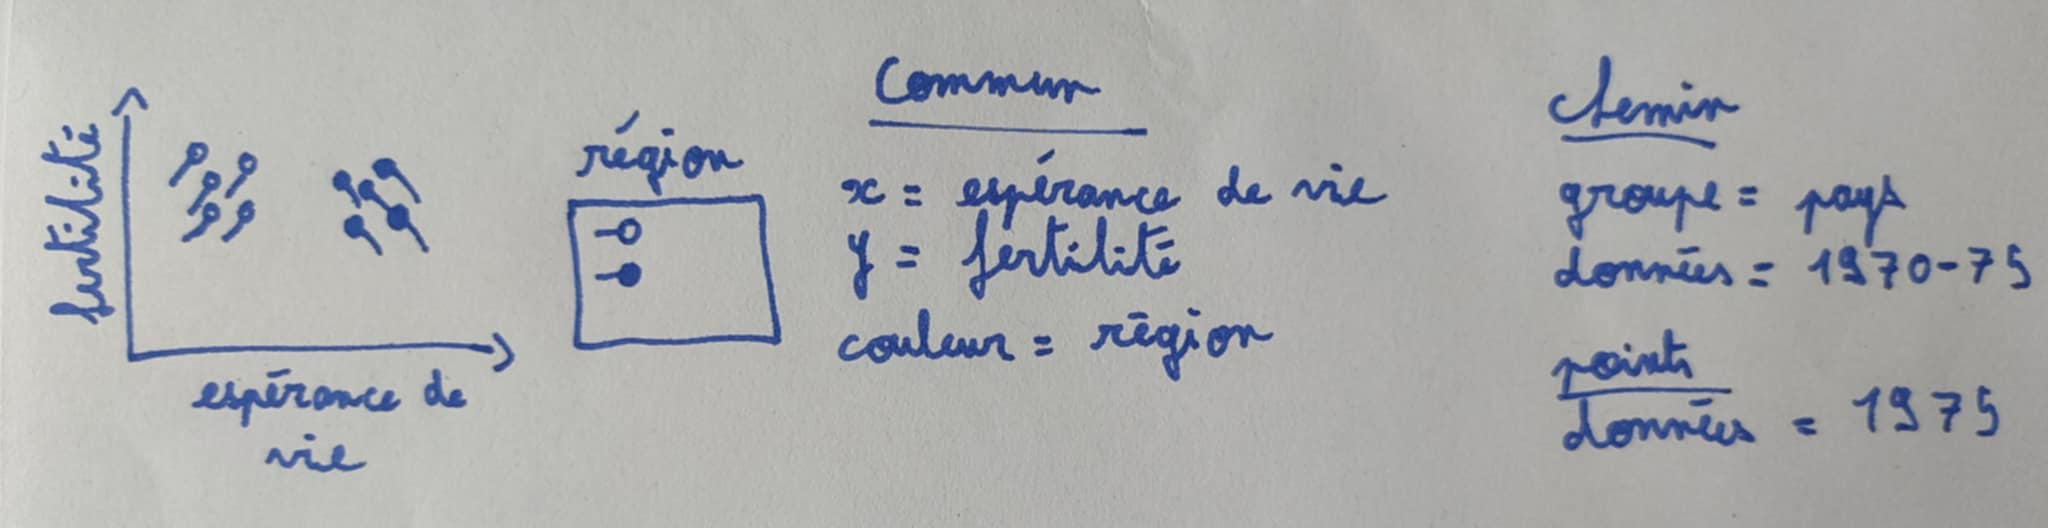 fertilité
espérance de
vie
région
Commun
x = espérance de vie
y = fertilité
couleur = région
chemin
groupe = pays
données = 1970-75
points
données = 1975